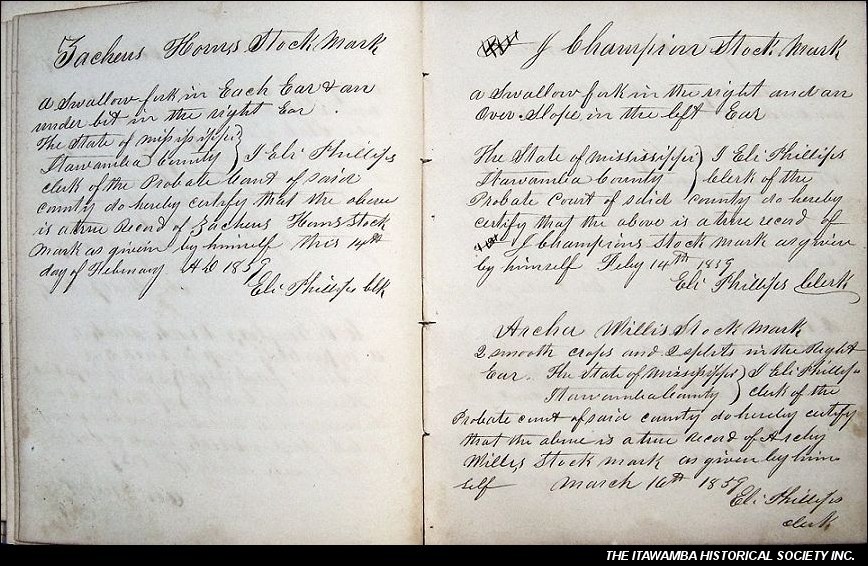 Zacheus Homes Stock Mark
a Swallow fork in Each Ear & an
under bit in the right Ear
The State of mississippi
Itawamba County } I Eli Phillips
clerk of the Probate Court of said
county do hereby certify that the above
is a true Record of Zacheus Homs Stock
mark as givein by himself this 14th
day of February A D 1839
Eli Phillips clk
J Champion Stock Mark
a Swallow fork in the right and an
Over-Slope in the left Ear
The State of mississippi } I Eli Phillips
Itawamba County Clerk of the
Probate Court of said county do hereby
certify that the above is a true record of
J Champions Stock mark as given
by himself Feby 14th 1839
Eli Phillips Clerk
Archer Willis Stock mark
2 smooth crops and 2 splits in the Right
Ear. The State of Mississippi } I Eli Phillips
Itawamba County clerk of the
Probate court of said county do hereby certify
that the above is a true record of
Willis Stock mark as given by him
self March 16th 1839
Eli Phillips
clerk
THE ITAWAMBA HISTORICAL SOCIETY INC.